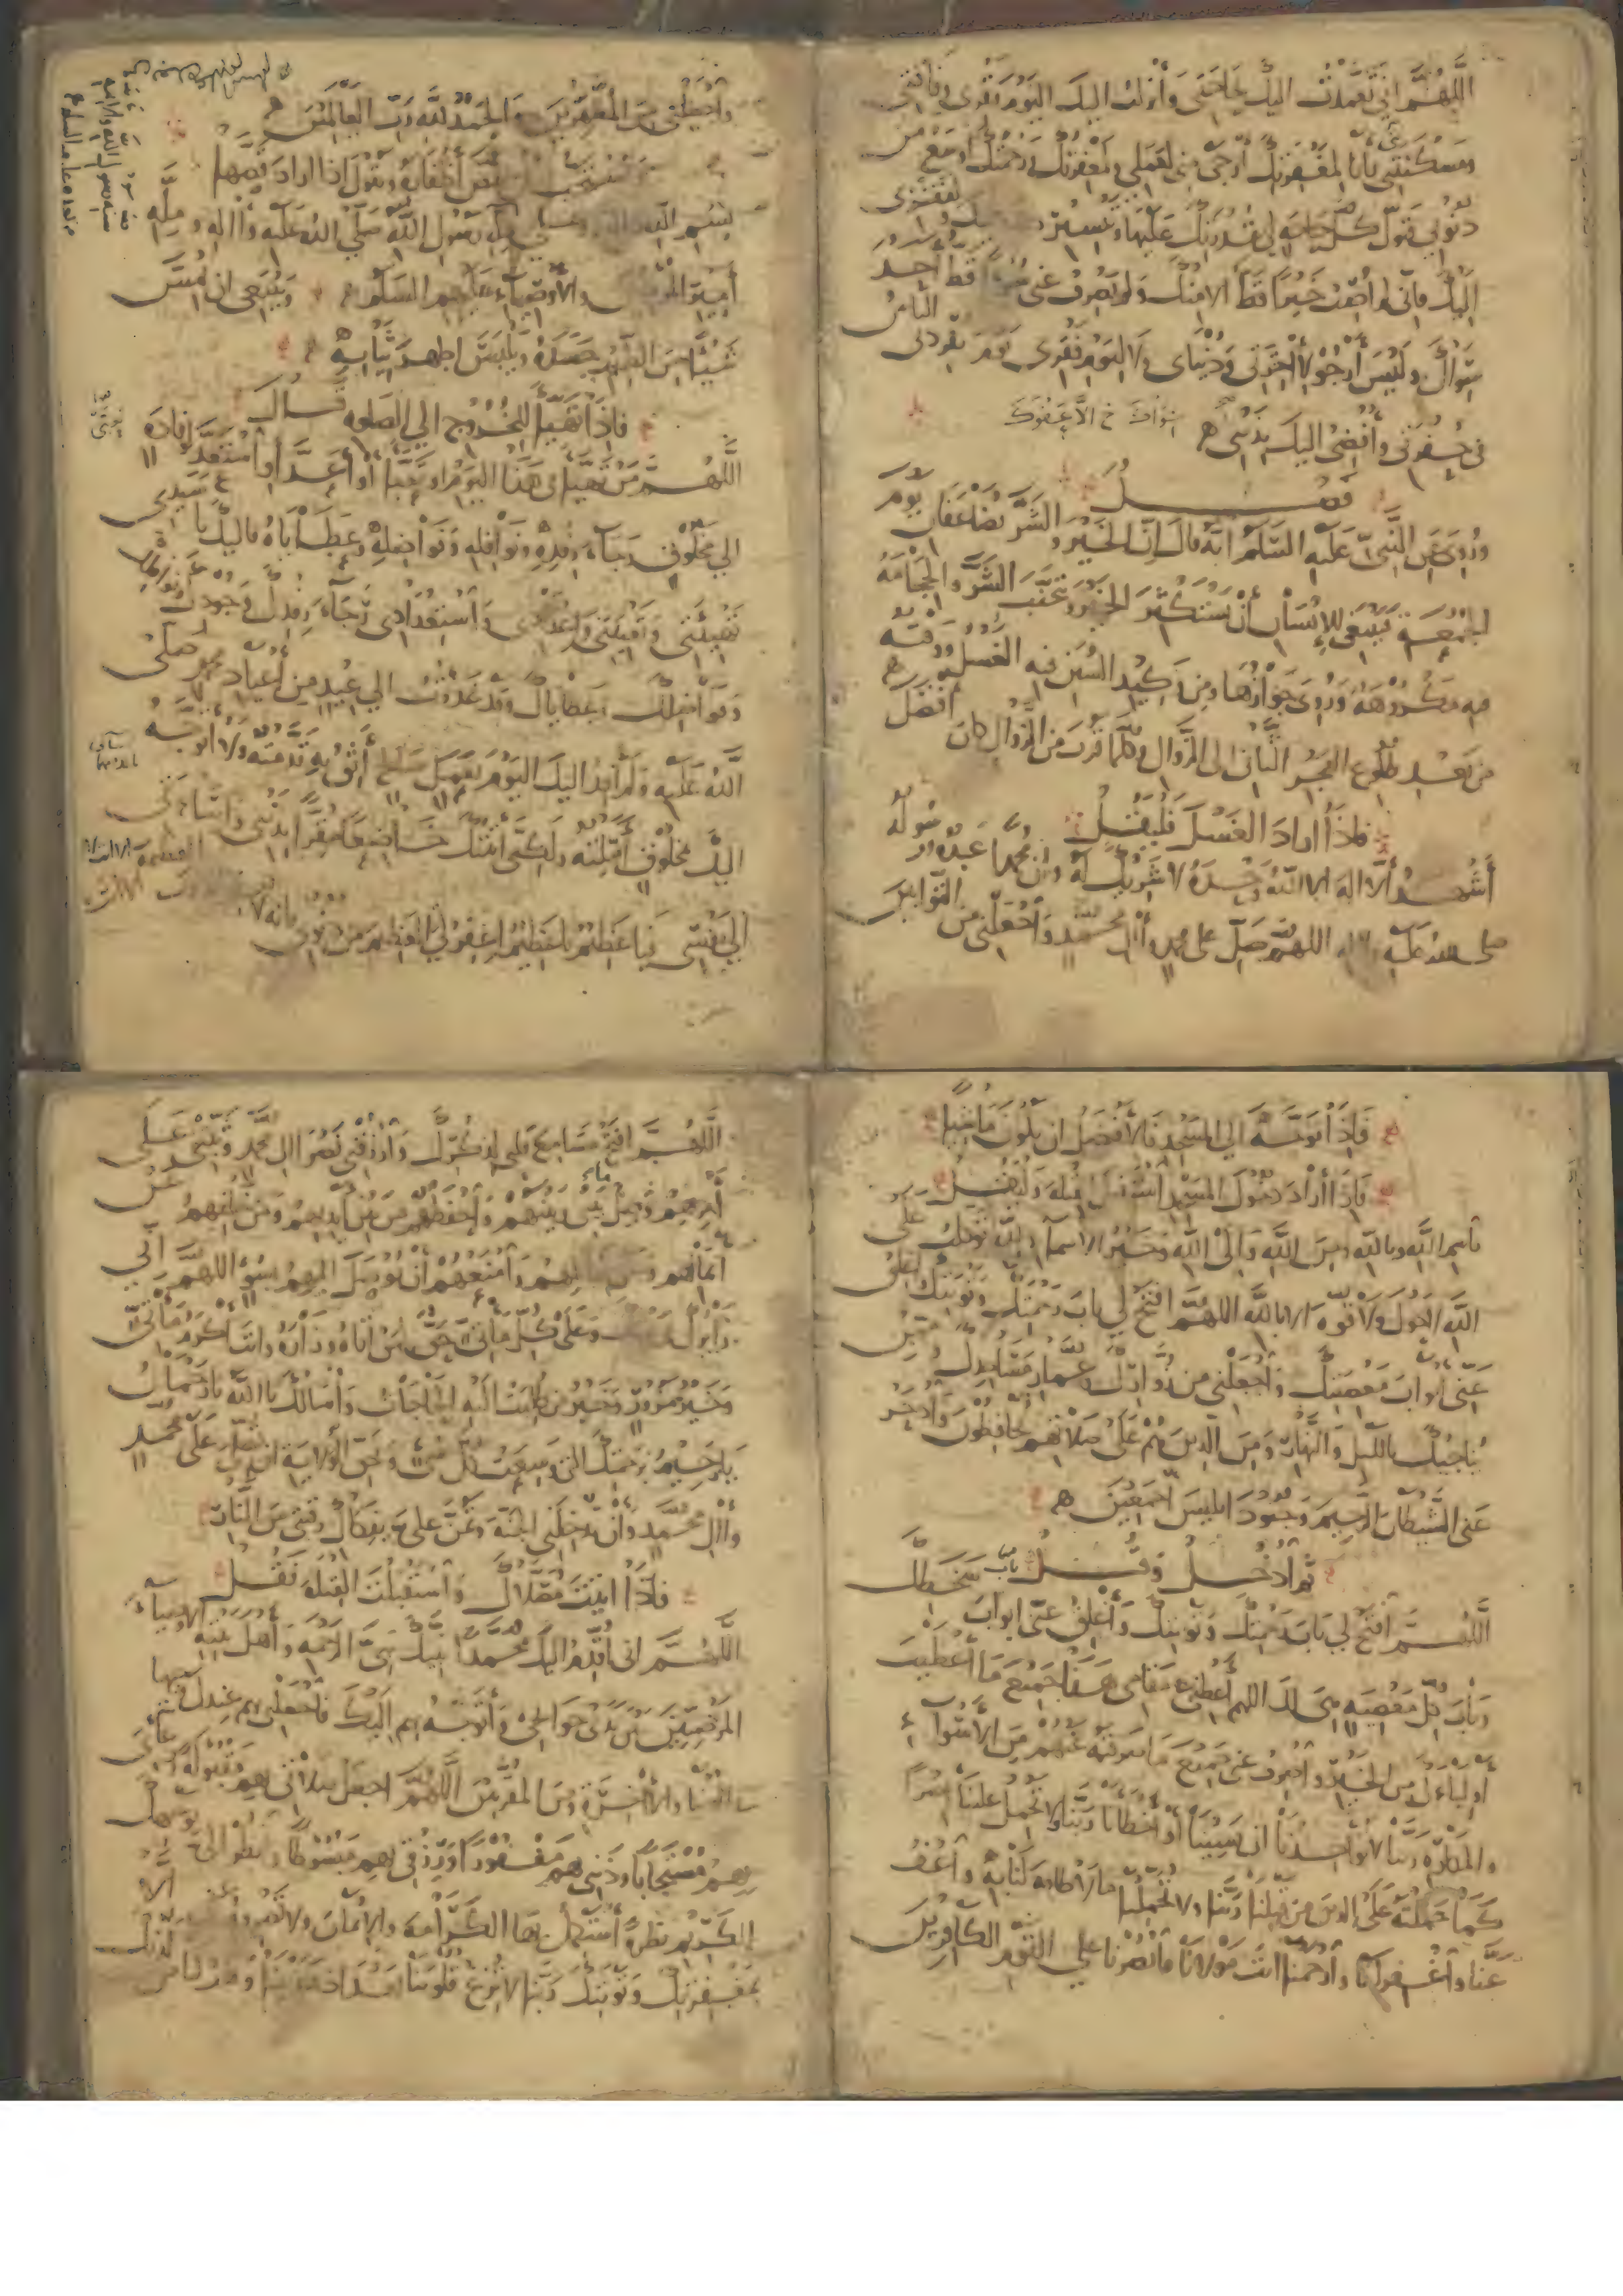 اللَّهُمَّ اِنّي تَعَمَّدْتُ اليكَ بِحَاجَتي وَأنزلتُ اليكَ اليومَ فَقْري وَفَاقَتي
ومَسْكَنَتِي فأنا لِمغْفِرَتِكَ أَرْجَى مِنّي لِعَمَلي ولَمَغْفِرَتُكَ وَرَحْمَتُكَ أَوسَعُ مِن
ذنُوبي فَتَوَلَّ كلّ حَاجَةٍ لي بِقُدْرَتِكَ عَلَيْهَا وتيسير لفَقْري
اليكَ فإنّي لم أُصِبْ خَيْرًا قَطُّ الا مِنكَ وَلم يَصْرِف عَنّي قَطُّ أَحَد
سِوَاكَ وَلَيْسَ أَرْجُو لآخِرَتي وَدُنْيَاي ولا لِيَوْمِ فَقْري يَوْمَ يُفرِدُني النَّاسُ
في حُفْرَتي وأُفْضِي اليكَ بِذَنْبي
فَصْل
ورُوِيَ عَن النَّبيّ عَلَيهِ السَّلَم أنّهُ قالَ إنّ الخَيْرَ والشَّرّ يُضَاعَفَانِ يَوْمَ
الجُمُعَةِ فَيَنْبَغي للإنْسَانِ أنْ يَسْتَكْثِرَ الخَيْرَ وَيَتَجَنَّبَ الشَّرَّ والحِجَامَةُ
فيه مَكْرُوْهَةٌ وَرُوِيَ جَوَازُهَا ومِن أَكِيْدِ السُّنَنِ فيه الغسل وَوَقْتُهُ
مِن بَعْدِ طُلُوع الفَجْرِ الثَّاني إلى الزَّوَالِ وكُلَّمَا قَرُبَ مِن الزَّوَالِ كان أَفْضَل
فإذَا أرَادَ الغُسْلَ فَلْيَقُلْ
أَشْهَدُ ألَّا إلهَ إلا اللهُ وَحْدَهُ لا شَرِيْكَ لَهُ وأن محمدا عَبْدُهُ ورَسُولُهُ
صلى الله عليه وآله اللهمَّ صَلِّ على محمد وآل محمّد وَاجْعَلْني مِن التَّوَّابِينَ
وَاجْعَلْني مِنَ المُتَطَهِّرِينَ وَالحَمْدُ للّهِ رَبِّ العَالَمِينَ
قَصّ أَظْفَارِهِ وَيَقُولُ إذَا أَرَادَ قَصَّهَا
بِسْمِ اللهِ رَسُولِ اللهِ صَلَّى اللهُ عَلَيْهِ وَآلِهِ وَمِلَّةِ
أَمِيرِ المؤمنين والأَوْصِيَاءِ عَلَيْهِم السَّلَم وَيَنْبَغِي ان يَمَسَّ
شَيْئًا مِنَ الطِّيْبِ جَسَدَهُ وَيَلْبَسَ أطهَرَ ثِيَابِهِ
فإذَا تَهَيَّأَ لِلْخُرُوجِ إلى الصَّلوةِ قَالَ
اللَّهُمَّ مَنْ تَهَيَّأَ في هَذَا اليَوْمِ أَوْ تَعَبَّأَ أَوْ أَعَدَّ أو اسْتَعَدَّ لِوِفَادَةٍ
إلى مَخْلُوْقٍ رَجَاءَ رِفْدِهِ وَنَوَافِلِهِ وَفَوَاضِلِهِ وَعَطَايَاهُ فإليكَ يا سَيِّدي
تَهْيِئَتي وَتَعْبِئَتي وَإعْدَادي وَاسْتِعْدَادي رَجَاءَ رِفْدِكَ وَجَوَائِزِكَ
وَنَوَافِلِكَ وَعَطَايَاكَ وقَد غَدَوْتُ إلى عِيْدٍ مِن أعيَادِ محمد صلى
اللهُ عَلَيْهِ وَلَم أَفِدْ إليكَ اليَوْمَ بِعَمَلٍ صالح أَثِقُ بِهِ قَدَّمْتُهُ ولا أَتَوَجَّهُ
إليكَ بمَخْلُوقٍ أَمَّلْتُهُ ولكِنّي أَتَيْتُكَ خَاضِعًا مُقِرًّا بِذَنْبي وإسَاءتي
إلى نَفْسِي فيَا عَظِيْمُ يا عَظِيْمُ اغْفِرْ لي العَظِيمَ مِن ذُنُوبي فإنّه لا
فَإذَا تَوَجَّهَ إلى المَسْجِدِ فالأفْضَلُ ان يكُونَ مَاشِيًا
فَإذَا أَرَادَ دخُولَ المَسْجِدِ اسْتَقْبَلَ القِبْلَةَ وَلْيَقُلْ
بِاسم اللهِ وباللهِ ومِنَ اللهِ وَإلى اللهِ وَخَيْرُ الأسمَاءِ للّهِ تَوَكّلْتُ عَلَى
اللهِ لا حَوْلَ ولا قُوَّةَ إلا باللهِ اللهُمَّ افْتَحْ لي بابَ رَحْمَتِكَ وَتَوْبَتِكَ وأغلق
عَنّي أبوابَ مَعْصِيَتِكَ وَاجْعَلْني مِن زُوَّارِكَ وعُمَّارِ مَسَاجِدِكَ وممَّن
يُنَاجِيكَ بالليلِ والنَّهارِ وَمِنَ الَّذِينَ هُمْ عَلَى صَلاتِهِم يُحَافِظُونَ وَادْحَرْ
عَنّي الشَّيْطَانَ الرَّجِيمَ وَجُنُودَ إبليسَ أَجْمَعِينَ
ثم ادْخُلْ وَقُلْ
اللَّهُمَّ افْتَحْ لي بَابَ رَحْمَتِكَ وَتَوْبَتِكَ وَأَغْلِقْ عَنّي أبوابَ سَخَطِكَ
وَبَابَ كُلِّ مَعْصِيَةٍ هِيَ لَكَ اللهم أَعْطِني في مَقَامي هَذَا جَمِيعَ مَا أَعْطَيْتَ
أَوْلِيَاءَكَ مِنَ الخَيْرِ وَاصْرِفْ عَني جَمِيعَ مَا صَرَفْتَهُ عَنْهُمْ مِنَ الأسْوَاءِ
والمَكَارِهِ رَبَّنَا لا تُؤَاخِذْنَا ان نَسِيْنَا أَوْ أَخْطَأْنَا رَبَّنَا وَلا تَحْمِلْ عَلَيْنَا إصْرًا
كَمَا حَمَلْتَهُ عَلَى الَّذِينَ مِن قَبْلِنَا رَبَّنَا ولا تُحَمِّلْنَا مَا لا طَاقَةَ لَنَا بِهِ وَاعْفُ
عَنَّا وَاغْفِرْ لَنَا وَارْحَمْنَا أنتَ مَوْلانَا فَانْصُرْنَا عَلَى القَوْمِ الكَافِرِينَ
اللَّهُمَّ افْتَحْ مَسَامِعَ قَلبي لِذِكْرِكَ وَارْزُقْني نَصْرَ آلِ مُحَمَّدٍ وَثَبِّتْني عَلَى
أَمْرِهِمْ وَصِلْ مَا بَيْني وَبَيْنَهُمْ وَاحْفَظْهُمْ مِن بَيْنِ أَيْدِيهِمْ وَمِنْ خَلْفِهِمْ وَعَنْ
أَيْمَانِهِم وَعَن شمائلهم وَامْنَعْهُمْ أَنْ يُوصَلَ إليهم بِسُوءٍ اللهمَّ إني
زَائِرُكَ وَعَلَى كلِّ مَأْتِيٍّ حَقٌّ لِمَنْ أَتَاهُ وَزَارَهُ وانتَ أَكْرَمُ مَأْتِيٍّ
وَخَيْرُ مَزُورٍ وَخَيْرُ مَن طُلِبَت إلَيْهِ الحَاجَاتُ وَأَسْأَلُكَ يا اللهُ يا رَحْمَانُ
يَا رَحِيمُ بِرَحْمَتِكَ التي وَسِعَتْ كُلَّ شَيْءٍ وَبِحَقِّ الوِلايَةِ أن تُصَلِّيَ عَلَى محمّدٍ
وآلِ محمّدٍ وَأنْ تُدْخِلَني الجنّةَ وَتَمُنَّ عَلَيَّ بِفَكَاكِ رَقَبَتي مِنَ النَّارِ
فَإذَا أَتَيْتَ مُصَلَّاكَ وَاسْتَقْبَلْتَ القِبْلَةَ فَقُلْ
اللَّهُمَّ إني أُقَدِّمُ إليكَ مُحَمَّدًا نَبِيَّكَ نَبِيَّ الرَّحْمَةِ وَأهلَ بَيْتِهِ الأوصياءَ
المَرْضِيِّينَ بَيْنَ يَدَيْ حَوَائِجِي وَأَتَوَجَّهُ بهم إلَيْكَ فَاجْعَلْني بهم عِنْدَكَ وَجِيهًا
في الدُّنْيَا والآخِرَةِ ومِنَ المُقَرَّبِينَ اللَّهُمَّ اجعَلْ صَلاتي بهم مَقْبُولَةً ودُعَائي
بِهِمْ مُسْتَجَابًا وذَنْبي بهم مَغْفُورًا ورِزْقي بهم مَبْسُوطًا وانظر إليَّ بِوَجْهِكَ
الكَرِيمِ نَظْرَةً أَسْتَكْمِلُ بهَا الكَرَامَةَ والإيمَانَ ولا تَصْرِفْهُ عني إلَّا
بِمَغْفِرَتِكَ وَتَوْبَتِكَ رَبَّنَا لا تُزِغْ قُلُوبَنَا بَعْدَ إذْ هَدَيْتَنَا وَهَبْ لَنَا مِن لدنك